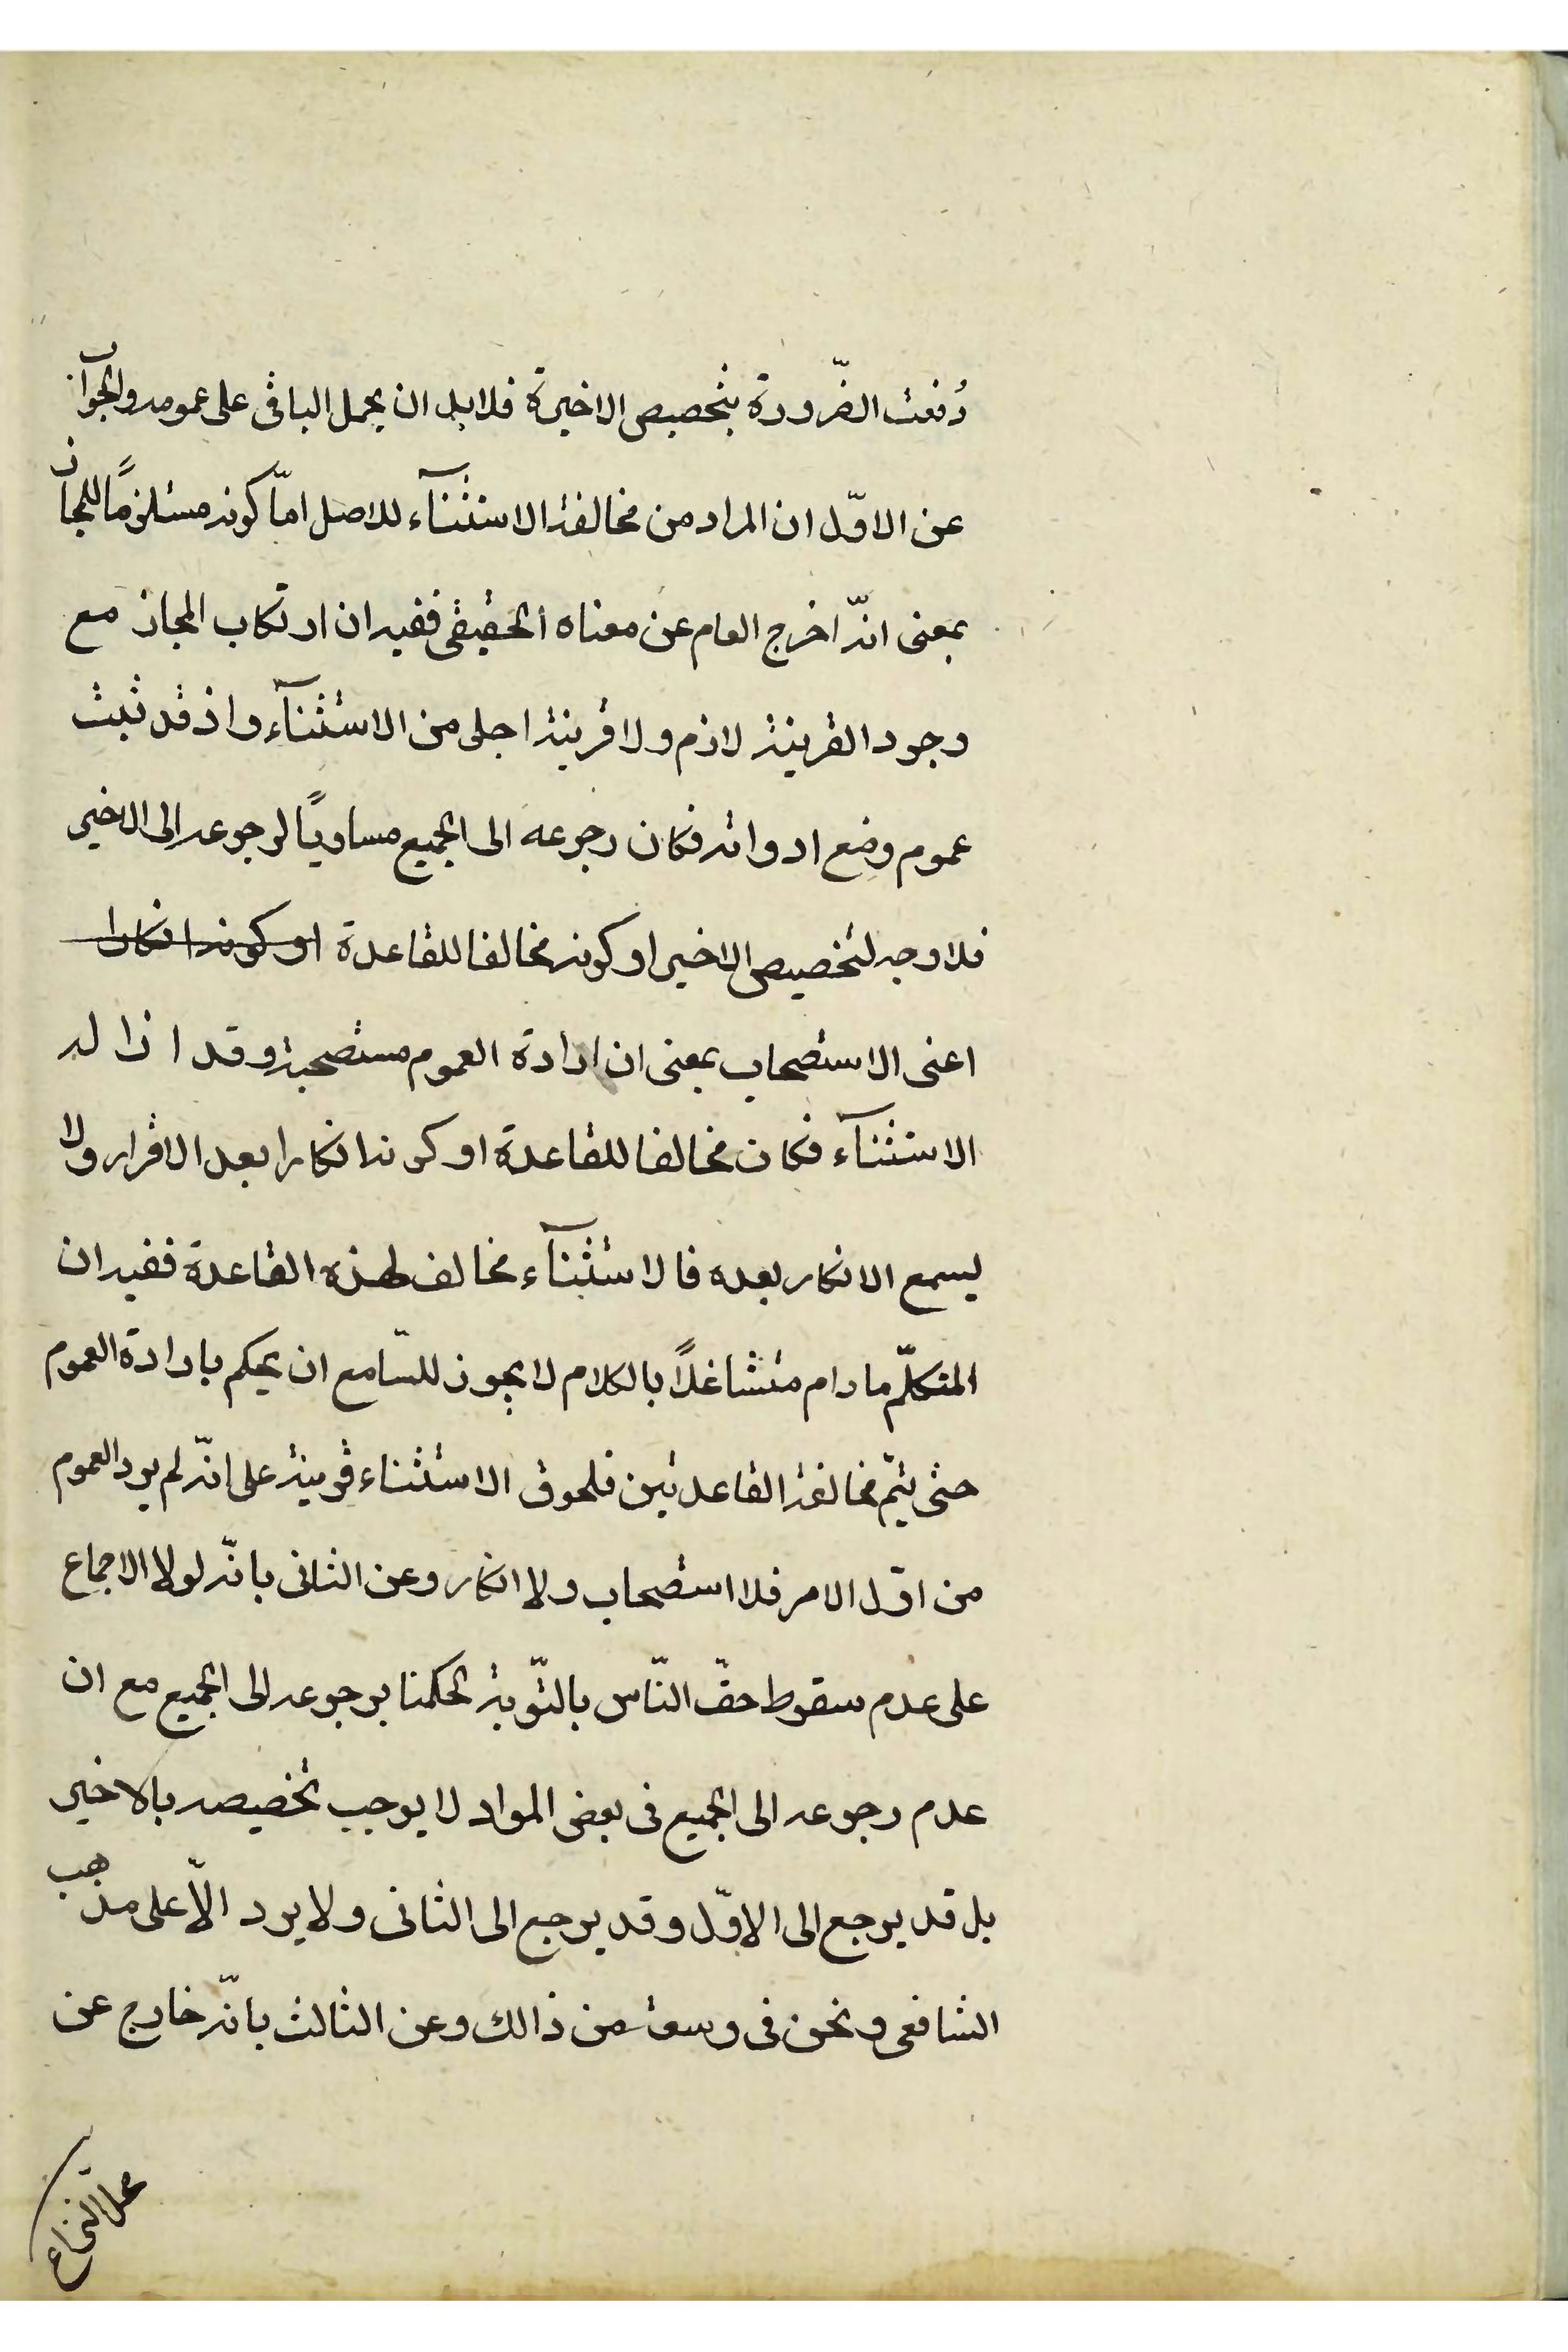 دُفعت الضّرورة بتخصيص الاخيرة فلا بد ان يحمل الباقى على عمومه والجوآب
عن الاوّل ان المراد من مخالفة الاستثنآء للاصل امّا كونه مستلزمًا للمجاز
بمعنى انّه اخرج العام عن معناه الحقيقى ففيه ان ارتكاب المجاز مع
وجود القرينة لازم ولا قرينة اجلى من الاستثنآء واذ قد ثبت
عموم وضع ادواته فكان رجوعه الى الجميع مساويًا لرجوعه الى الاخير
فلا وجه لتخصيص الاخير او كونه مخالفا للقاعدة او كونه انكارا
اعنى الاستصحاب بمعنى ان ارادة العموم مستصحبة وقد ازاله
الاستثنآء فكان مخالفا للقاعدة او كونه انكارا بعد الاقرار ولا
يسمع الانكار بعده فالاستثنآء مخالف لهذه القاعدة ففيه ان
المتكلّم مادام متشاغلًا بالكلام لا يجوز للسّامع ان يحكم بارادة العموم
حتى يتمّ مخالفة القاعدتين فلحوق الاستثناء قرينة على انّه لم يرد العموم
من اوّل الامر فلا استصحاب ولا انكار وعن الثانى بانّه لولا الاجماع
على عدم سقوط حقّ النّاس بالتّوبة لحكمنا برجوعه الى الجميع مع ان
عدم رجوعه الى الجميع فى بعض المواد لا يوجب تخصيصه بالاخير
بل قد يرجع الى الاوّل وقد يرجع الى الثانى ولا يرد الّا على مذهب
الشافعى ونحن فى وسعة من ذالك وعن الثالث بانّه خارج عن
محل النزاع